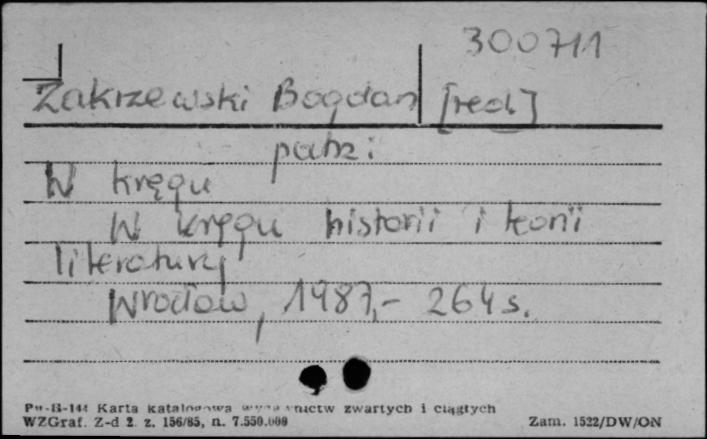 300711
Zakrzewski Bogdan [red.]
patrz:
W kręgu
W kręgu historii i teorii
literatury
Wrocław, 1987,- 264 s.
Pu-B-144 Karta katalogowa zwartych i ciągłych
WZGraf. Z-d 2. z. 156/85, n. 7.550.000 Zam. 1522/DW/ON